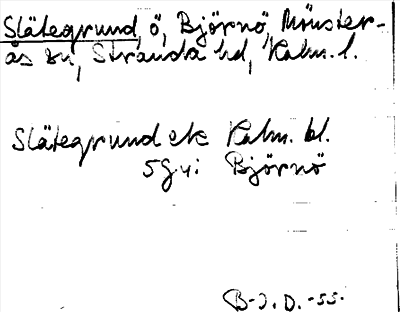 Slätegrund, ö, Björnö, Mönster-
ås sn, Stranda hd, Kalm. l.
Slätegrund ek Kalm. bl.
5 G y i Björnö
B-J. D. -55.